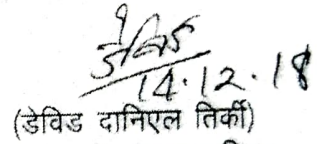 डेविड
14.12.18
(डेविड दानिएल तिर्की)